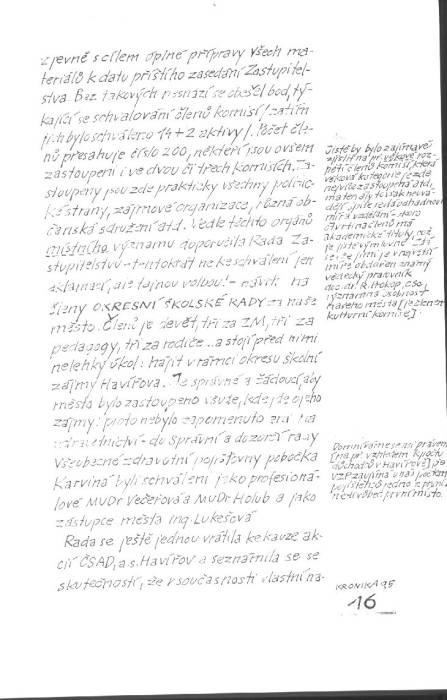 zjevně s cílem úplné přípravy všech ma-
teriálů k datu příštího zasedání Zastupitel-
stva. Bez takových nesnází se obešel bod, tý-
kající se schvalování členů komisí / zatím
jich bylo schváleno 14 + 2 aktivy /. Počet čle-
nů přesahuje číslo 200, někteří jsou ovšem
zastoupeni i ve dvou či třech komisích. Za-
stoupeny jsou zde prakticky všechny politic-
ké strany, zájmové organizace, různá ob-
čanská sdružení atd. Vedle těchto orgánů
místního významu doporučila Rada Za-
stupitelstvu - tentokrát ne ke schválení jen
aklamací, ale tajnou volbou! - návrh na
členy OKRESNÍ ŠKOLSKÉ RADY za naše
město. Členů je devět, tři za ZM, tři za
pedagogy, tři za rodiče.. a stojí před nimi
nelehký úkol: hájit v rámci okresu školní
zájmy Havířova. Je správné a žádoucí, aby
město bylo zastoupeno všude, kde jde o jeho
zájmy: proto nebylo zapomenuto ani na
zdravotnictví - do Správní a dozorčí rady
Všeobecné zdravotní pojišťovny pobočka
Karviná byli schváleni jako profesioná-
lové MUDr Večeřová a MUDr Holub a jako
zástupce města ing. Lukešová
Rada se ještě jednou vrátila ke kauze ak-
cií ČSAD, a.s. Havířov a seznámila se se
skutečností, že v současnosti vlastní na-
Jistě by bylo zajímavé
zjistit na př. věkové roz-
pětí členů komisí, která
věková kategorie je zde
nejvíce zastoupena atd.,
materiály to však neuvá-
dějí
čtvrtina členů má
akademické tituly, což
je jistě výmluvné
vědecký pracovník
doc. dr. R. Prokop, CSc,
významná osobnost
našeho města [je členem
kulturní komise].
Domníváme se, že právem
[na př. vzhledem k počtu
důchodců v Havířově] je
VZP zaujímá u nás počtem
pojištěnců jedno z první-
ne-li vůbec první místo.
KRONIKA 95
16